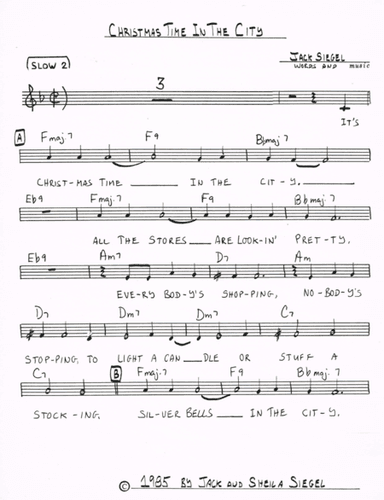 CHRISTMAS TIME IN THE CITY
SLOW 2
JACK SIEGEL
WORDS AND MUSIC
3
IT'S
A
Fmaj.7 F9 Bbmaj7
CHRIST-MAS TIME ____ IN THE CIT-Y.
Eb9 Fmaj.7 F9 Bb maj.7
ALL THE STORES ____ ARE LOOK-IN' PRET-TY,
Eb9 Am7 D7 Am
EVE-RY BOD-Y'S SHOP-PING, NO-BOD-Y'S
D7 Dm7 Dm7 C7
STOP-PING TO LIGHT A CAN ____ DLE OR STUFF A
C7 B Fmaj.7 F9 Bb maj.7
STOCK-ING. SIL-VER BELLS ____ IN THE CIT-Y.
© 1985 BY JACK AND SHEILA SIEGEL